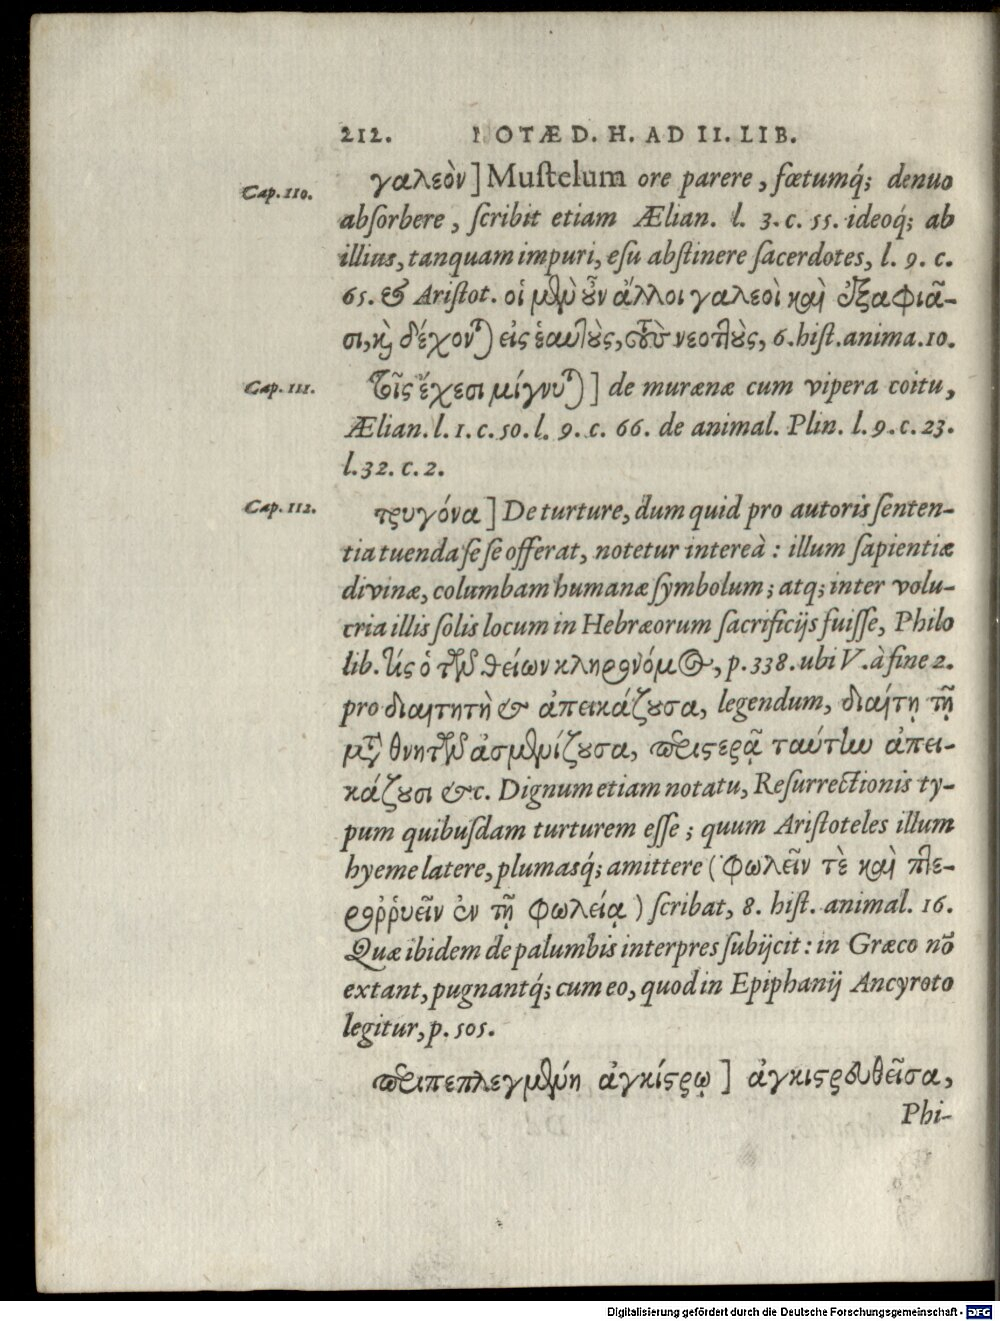 212. NOTÆ D. H. AD II. LIB.
Cap. 110. γαλεὸν] Muſtelum ore parere, fœtumq́; denuo
abſorbere, ſcribit etiam Ælian. l. 3. c. 55. ideoq́; ab
illius, tanquam impuri, eſu abſtinere ſacerdotes, l. 9. c.
65. & Ariſtot. οἱ μὲν οὖν ἄλλοι γαλεοὶ καὶ ἐξαφιᾶ-
σι, καὶ δέχονται εἰς ἑαυτοὺς, τοὺς νεοττοὺς, 6. hiſt. anima. 10.
Cap. 111. τοῖς ἔχεσι μίγνυται] de murænæ cum vipera coitu,
Ælian. l. 1. c. 50. l. 9. c. 66. de animal. Plin. l. 9. c. 23.
l. 32. c. 2.
Cap. 112. τρυγόνα] De turture, dum quid pro autoris ſenten-
tia tuenda ſeſe offerat, notetur intereà: illum ſapientiæ
divinæ, columbam humanæ ſymbolum; atq; inter volu-
cria illis ſolis locum in Hebræorum ſacrificijs fuiſſe, Philo
lib. τίς ὁ τῶν θείων κληρονόμος, p. 338. ubi V. à fine 2.
pro διαιτητὴ & ἀπεικάζουσα, legendum, διαίτῃ τῇ
μετὰ θνητῶν ἀσμενίζουσα, περιστερᾷ ταύτην ἀπει-
κάζουσι &c. Dignum etiam notatu, Reſurrectionis ty-
pum quibuſdam turturem eſſe; quum Ariſtoteles illum
hyeme latere, plumasq́; amittere (φωλεῖν τὲ καὶ πτε-
ροῤῥυεῖν ἐν τῇ φωλείᾳ) ſcribat, 8. hiſt. animal. 16.
Quæ ibidem de palumbis interpres ſubijcit: in Græco nō
extant, pugnantq́; cum eo, quod in Epiphanij Ancyroto
legitur, p. 505.
περιπεπλεγμένη ἀγκίστρῳ] ἀγκιστρευθεῖσα,
Phi-
Digitalisierung gefördert durch die Deutsche Forschungsgemeinschaft - DFG